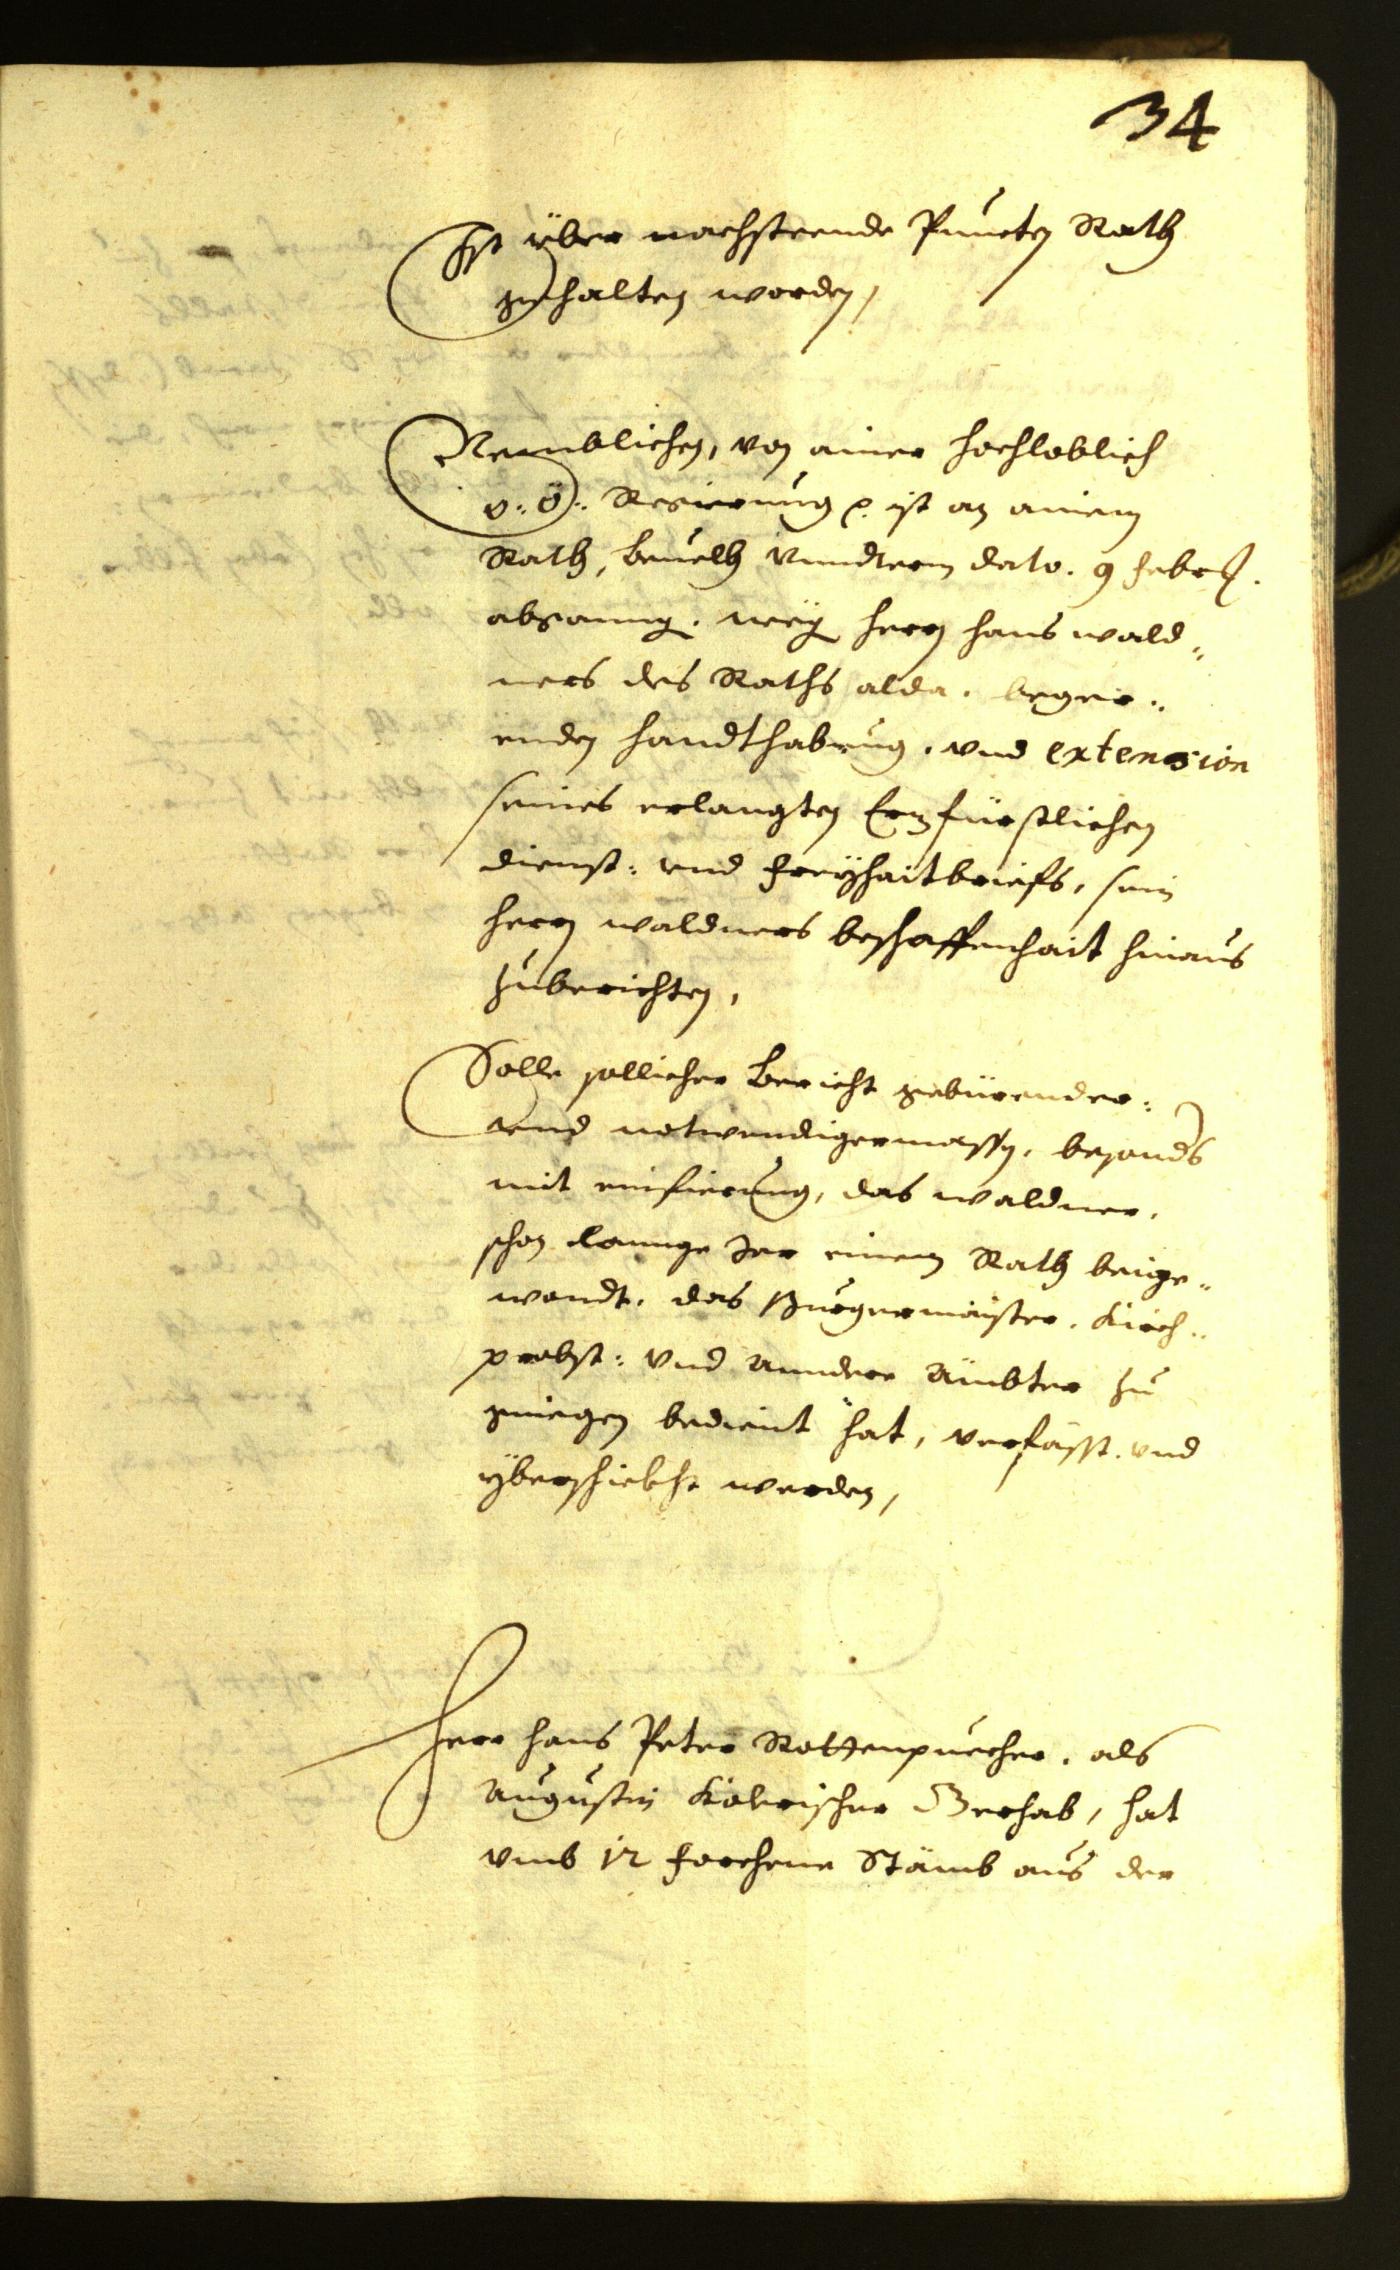 34
Ist über nachsteende Puncten Rath
gehalten worden,
Nemblichen, von ainer hochloblich
o: ö: Regierung ist an ainem
Rath, beuelh vnndterm dato. 9 Febr.
abganng. weg herrn Hans Wald„
ners des Raths alda. beger„
enden handthabung. vnd extension
seines erlangten Erzfürstlichen
dienst: vnd freyhaitbriefs, sein
herrn Waldners beschaffenhait hinaus
zuberichten,
Solle sollicher Bericht gebürender:
vnd notwendigermassen, besonders
mit einfierung, das Waldner,
schon lannge Jar einem Rath beige„
wondt, das Burgermaister, Kirch„
probst: vnd annder Ämbter zu
geniegen bedient hat, verfasst vnd
yberschickht werden,
Herr Hans Peter Rottenpuecher, als
Augustin Kölerischer Gerhab, hat
vmb 12 forchene Stämb aus der